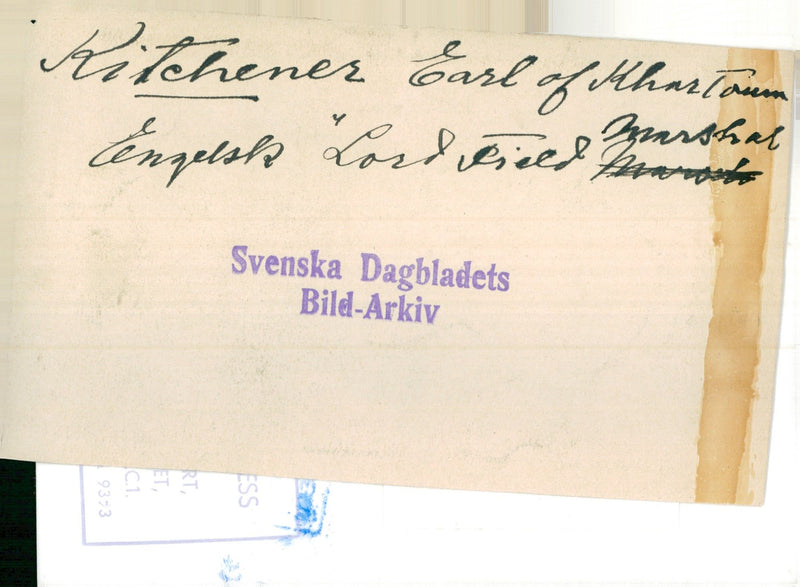 Kitchener Earl of Khartoum
Engelsk "Lord Field Marshal
Svenska Dagbladets
Bild-Arkiv
ESS
RT,
ET,
C.1.
9393